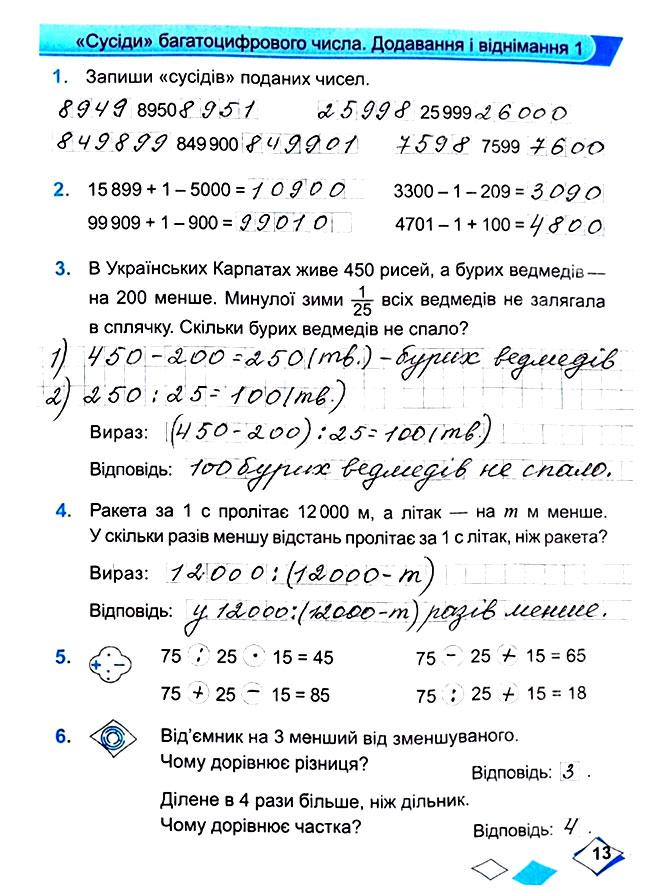 «Сусіди» багатоцифрового числа. Додавання і віднімання 1
1. Запиши «сусідів» поданих чисел.
8949 8950 8951 25998 25 999 26000
849899 849 900 849901 7598 7599 7600
2. 15 899 + 1 – 5000 = 10900 3300 – 1 – 209 = 3090
99 909 + 1 – 900 = 99010 4701 – 1 + 100 = 4800
3. В Українських Карпатах живе 450 рисей, а бурих ведмедів —
на 200 менше. Минулої зими 1/25 всіх ведмедів не залягала
в сплячку. Скільки бурих ведмедів не спало?
1) 450 – 200 = 250 (тв.) – бурих ведмедів
2) 250 : 25 = 100 (тв.)
Вираз: (450 – 200) : 25 = 100 (тв.)
Відповідь: 100 бурих ведмедів не спало.
4. Ракета за 1 с пролітає 12 000 м, а літак — на m м менше.
У скільки разів меншу відстань пролітає за 1 с літак, ніж ракета?
Вираз: 12000 : (12000 – m)
Відповідь: у 12000 : (12000 – m) разів менше.
5. + : · – 75 : 25 · 15 = 45 75 – 25 + 15 = 65
75 + 25 – 15 = 85 75 : 25 + 15 = 18
6. Від’ємник на 3 менший від зменшуваного.
Чому дорівнює різниця? Відповідь: 3 .
Ділене в 4 рази більше, ніж дільник.
Чому дорівнює частка? Відповідь: 4 .
13